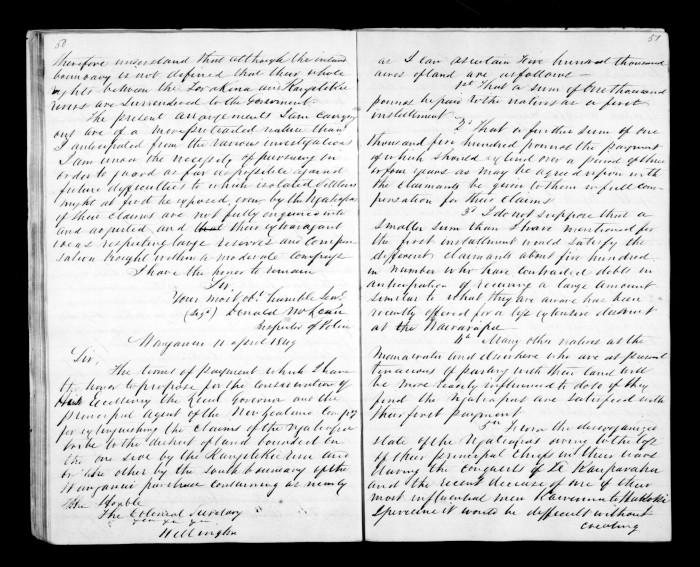 50
therefore understand that although the inland
boundary is not defined that their whole
rights between the Torakina and Rangitikei
rivers are surrendered to the Government.
The present arrangements I am carrying
out are of a more protracted nature than
I anticipated from the various investigations
I am under the necessity of pursuing in
order to guard as far as possible against
future difficulties to which isolated settlers
might at first be exposed, even by the Ngatiapas
if their claims are not fully enquired into
and adjusted, and their extravagant
ideas respecting large reserves and compen
sation brought within a moderate compass
I have the honor to remain
Sir
Your most obt humble Servt
(Sigd) Donald McLean
Inspector of Police
Wanganui 11 April 1849
Sir,
The terms of payment which I have
the honor to propose for the consideration of
His Excellency the Lieut Governor and the
principal Agent of the New Zealand Compy
for extinguishing the claims of the Ngatiapa
tribe to the district of land bounded on
the one side by the Rangitikei river and
on the other by the south boundary of the
Wanganui purchase containing as nearly
The Honble
The Colonial Secretary
Wellington
51
as I can ascertain Five hundred thousand
acres of land are as follows—
1st That a sum of One thousand
pounds be paid to the natives as a first
installment
2d That a further sum of one
thousand five hundred pounds the payment
of which should extend over a period of three
or four years as may be agreed upon with
the claimants be given to them in full com-
pensation for their claims
3d I do not suppose that a
smaller sum than I have mentioned for
the first installment would satisfy the
different claimants about five hundred
in number who have contracted debts in
anticipation of receiving a large amount
similar to what they are aware has been
recently offered for a less extensive district
at the Wairarapa
4th Many other natives at the
Manawatu and elsewhere who are at present
tenacious of parting with their land will
be more readily influenced to do so if they
find the Ngatiapas are satisfied with
their first payment
5th From the disorganized
state of the Ngatiapas owing to the loss
of their principal chiefs in their wars
during the conquests of Te Rauparaha
and the recent decease of one of their
most influential men
I perceive it would be difficult without
creating